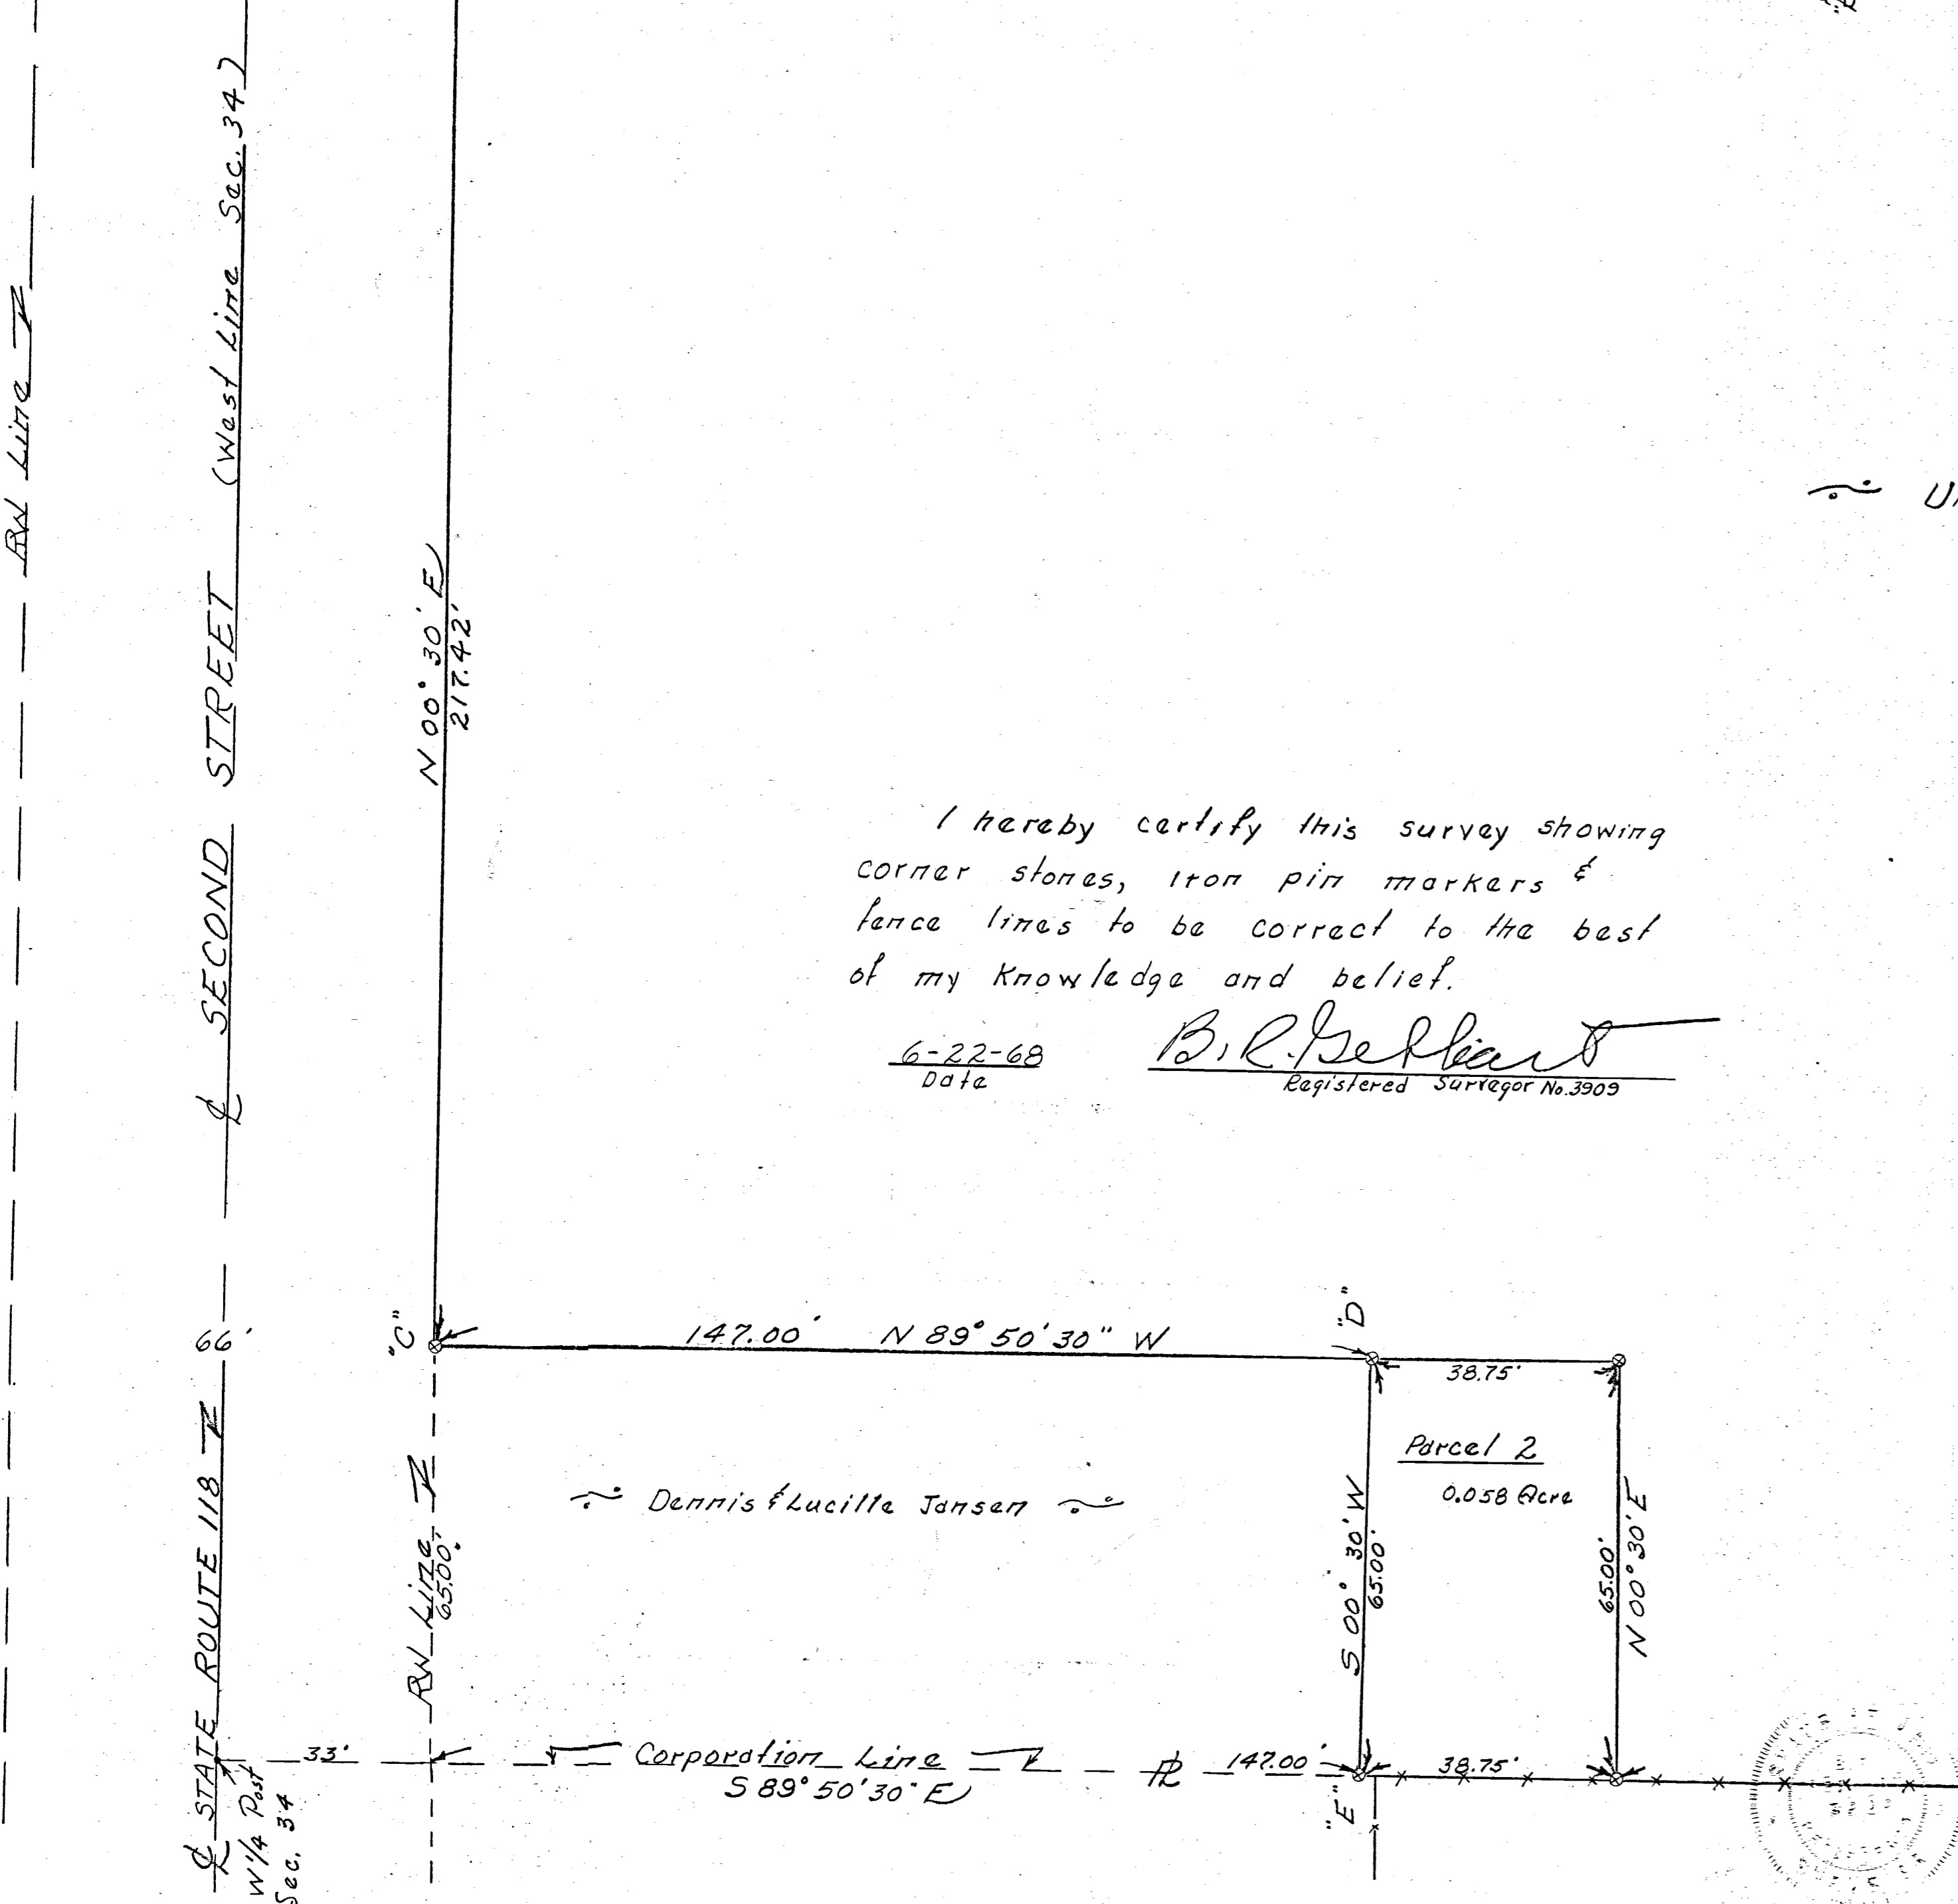 RW Line
(West Line Sec. 34)
℄ SECOND STREET
N 00° 30' E
217.42'
I hereby certify this survey showing
corner stones, iron pin markers &
fence lines to be correct to the best
of my knowledge and belief.
6-22-68
Date
B.R. Gebhart
Registered Surveyor No. 3909
66'
"C"
147.00' N 89° 50' 30" W
"D"
38.75'
Parcel 2
0.058 Acre
Dennis & Lucille Jansen
℄ STATE ROUTE 118
RW Line
65.00'
S 00° 30' W
65.00'
65.00'
N 00° 30' E
33'
Corporation Line
S 89° 50' 30" E
℄
147.00'
"E"
38.75'
W 1/4 Post
Sec. 34